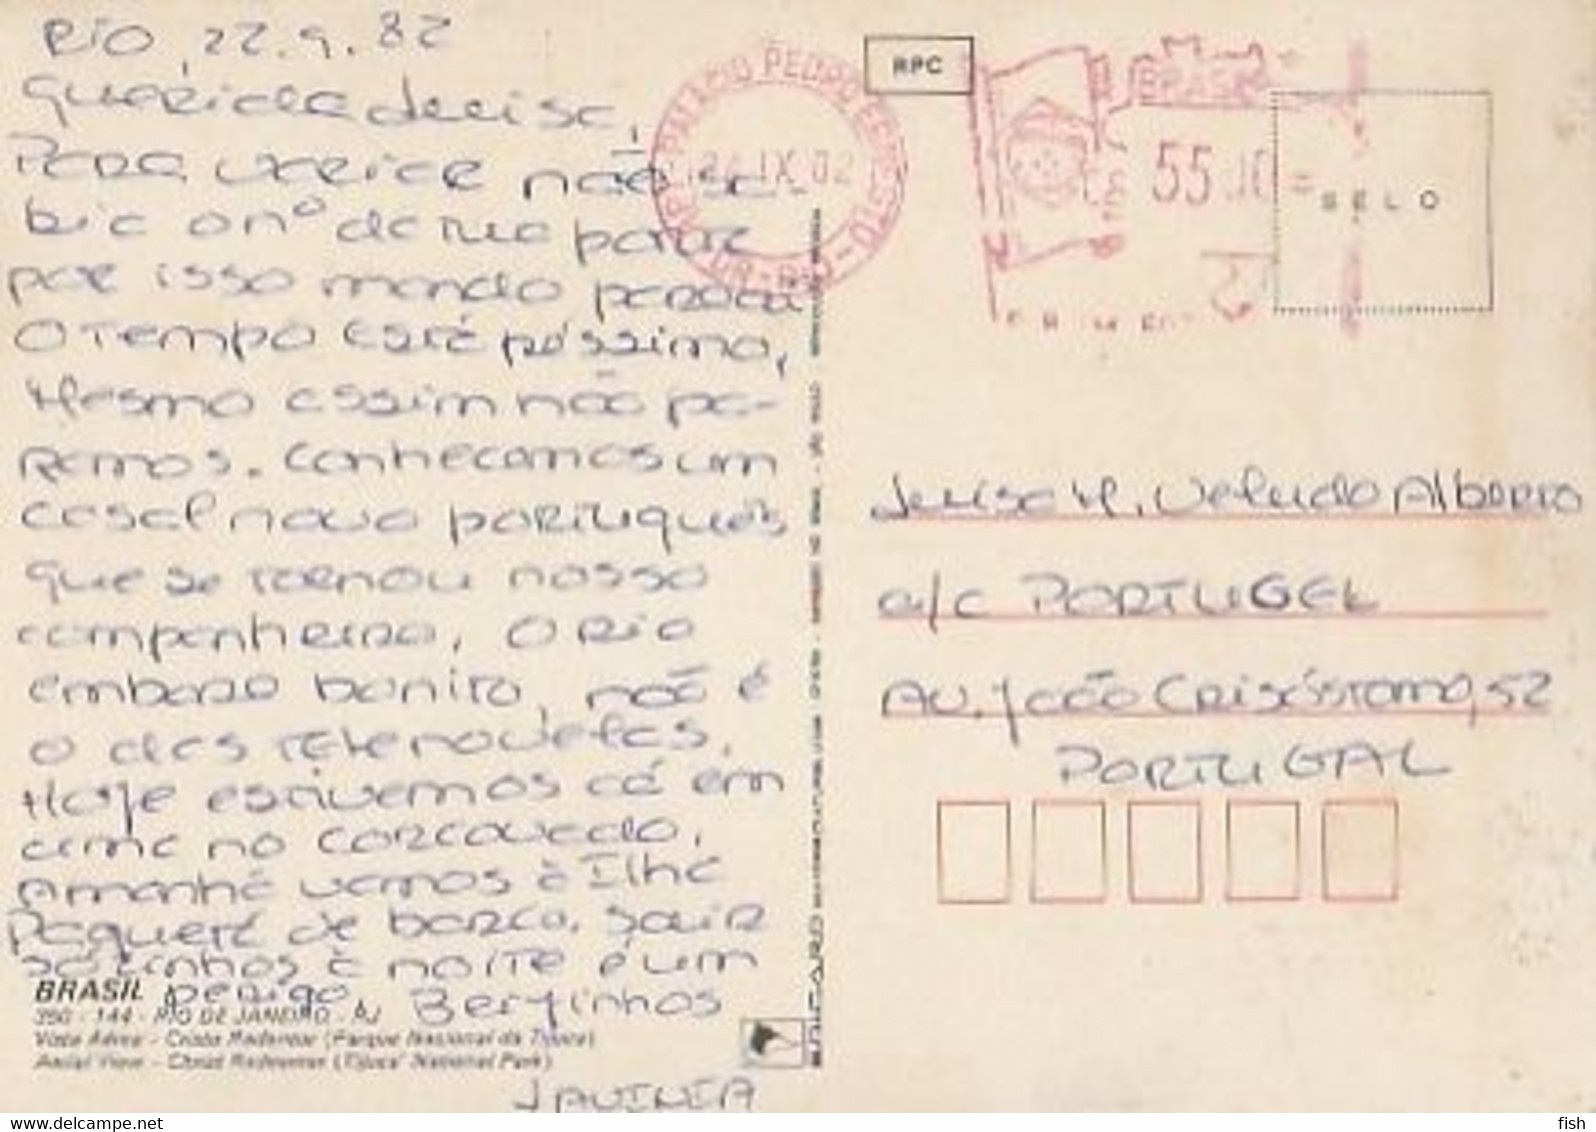 RIO, 22.9.82
Querida Denise,
Para variar não sa-
bia o nº da rua para
por isso mando para aí
O Tempo está péssimo,
Mesmo assim não pa-
ramos. Conhecemos um
casal novo português
que se tornou nosso
companheiro, O Rio
embora bonito, não é
o das telenovelas.
Hoje estivemos cá em
cima no Corcovado.
Amanhã vamos à Ilha
Paquetá de barco. Sair
sózinhos à noite é um
perigo, Beijinhos
BRASIL
350 - 144 - RIO DE JANEIRO - RJ
Vista Aérea - Cristo Redentor (Parque Nacional da Tijuca)
Aerial View - Christ Redeemer (Tijuca National Park)
RPC
PALÁCIO PEDRO ERNESTO
IX
BRASIL
55
SELO
Denise M. Veludo Alberto
a/c PORTUGAL
AV. João Crisóstomo, 52
PORTUGAL
fish